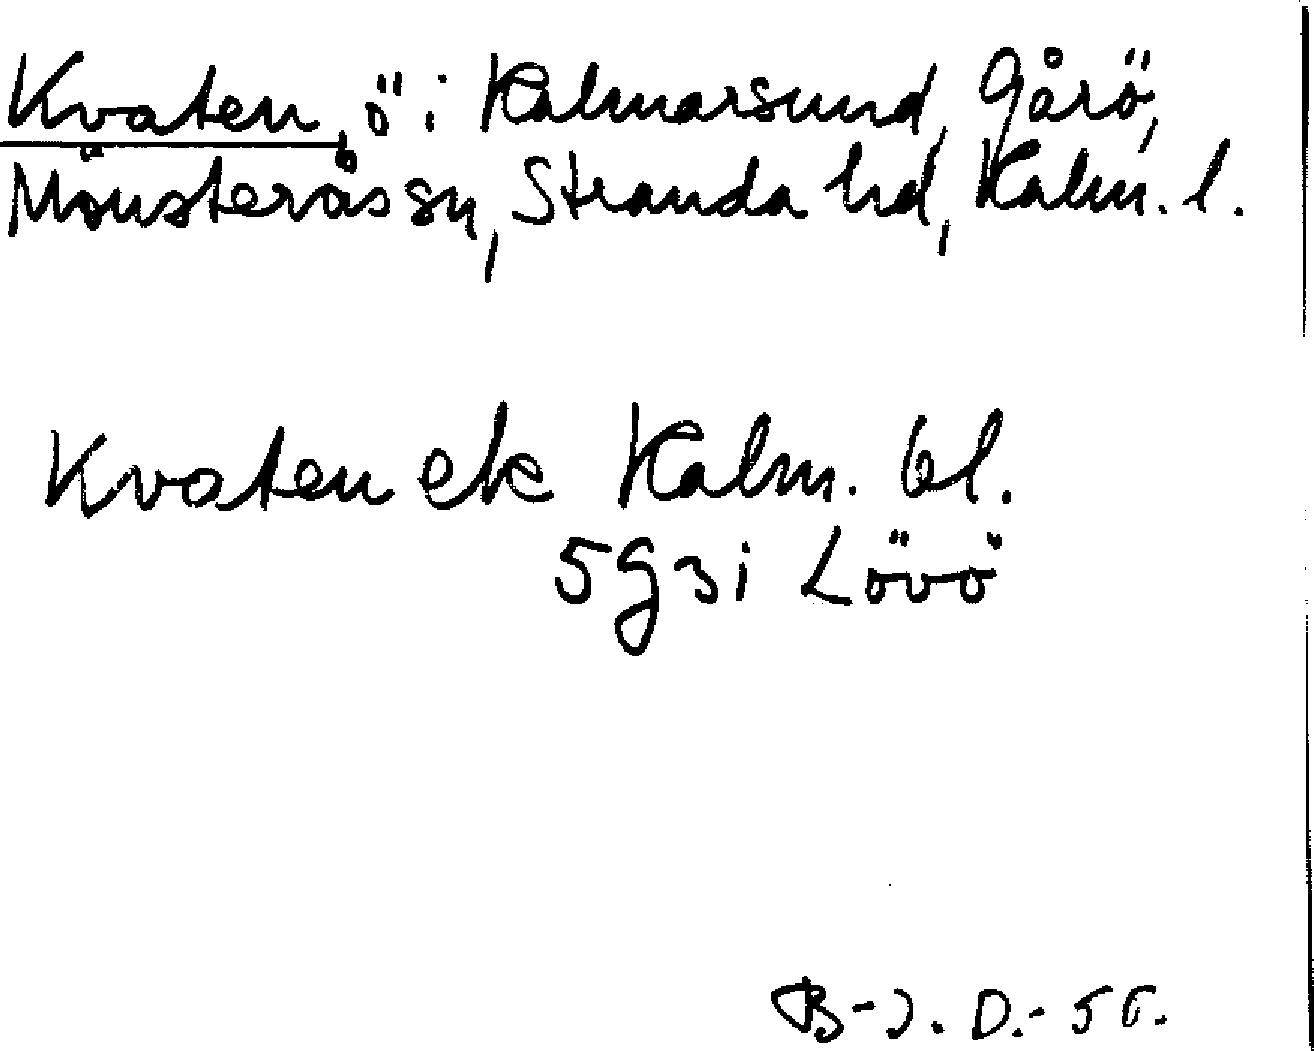 Kvaten, ö i Kalmarsund, Gårö,
Mönsterås sn, Stranda hd, Kalm. l.
Kvaten ek Kalm. bl.
5G3i Lövö
B-J. D.-56.